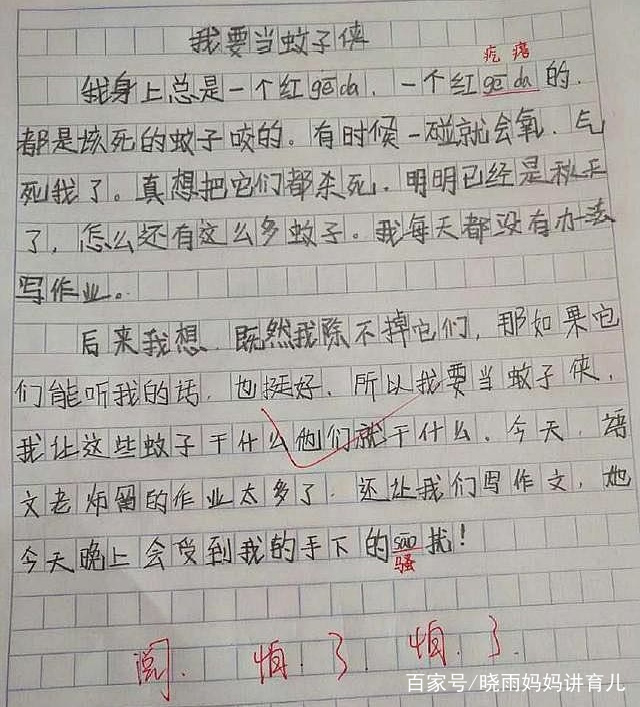 我要当蚊子侠
疙瘩
我身上总是一个红gēda，一个红gēda的，
都是该死的蚊子咬的。有时候一碰就会氧，气
死我了。真想把它们都杀死，明明已经是秋天
了，怎么还有这么多蚊子。我每天都没有办法
写作业。
后来我想，既然我除不掉它们，那如果它
们能听我的话，也挺好，所以我要当蚊子侠，
我让这些蚊子干什么他们就干什么。今天，语
文老师留的作业太多了，还让我们写作文，她
今天晚上会受到我的手下的sāo扰！
骚
阅。怕了，怕了。
百家号/晓雨妈妈讲育儿